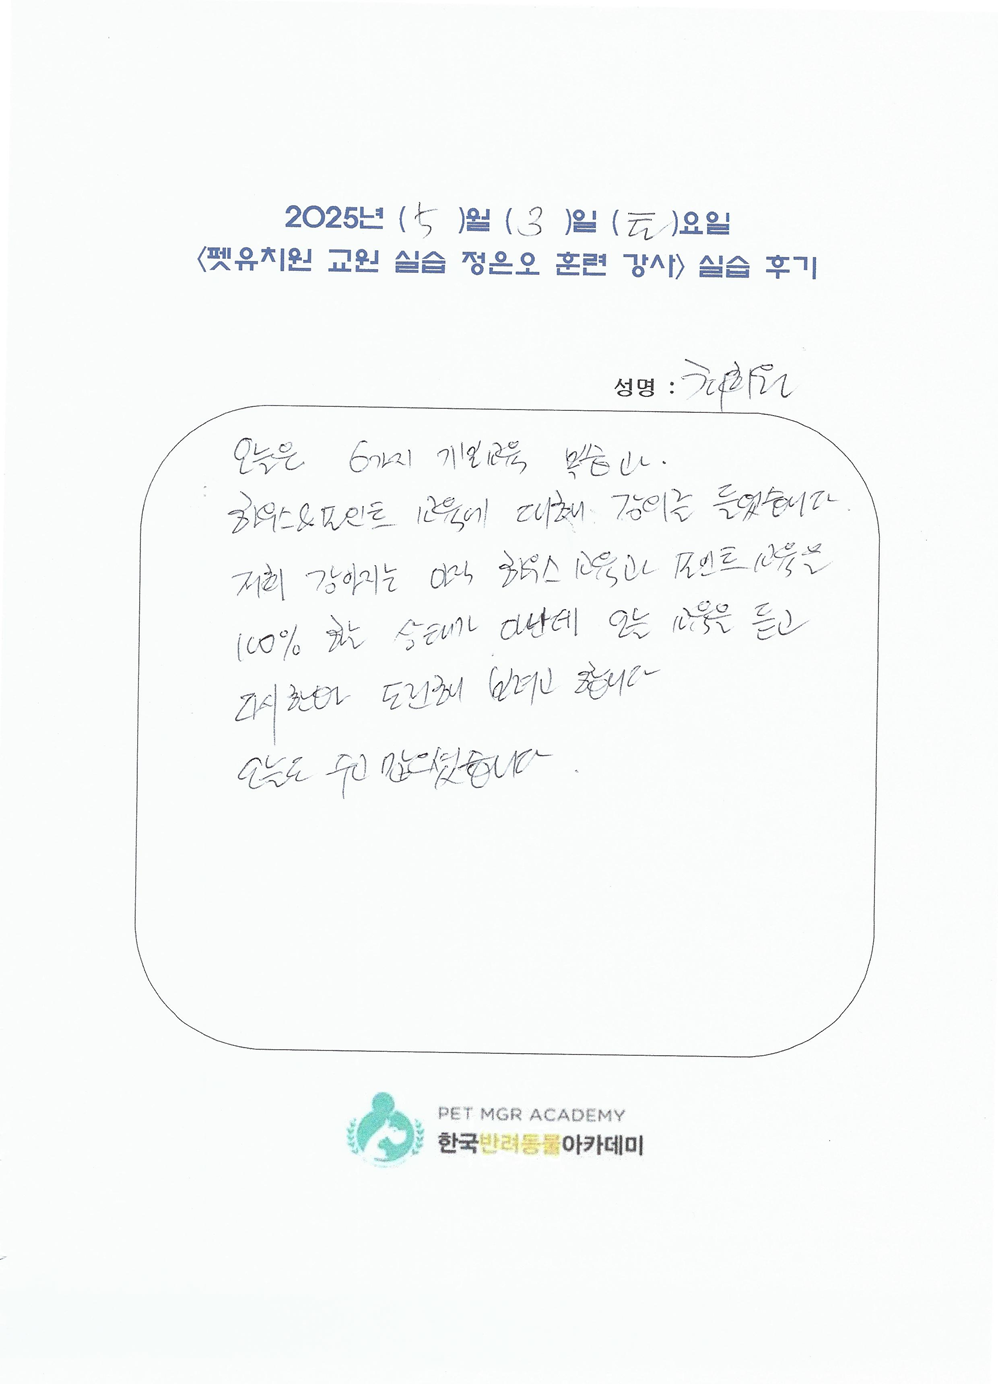 2025년 ( 5 )월 ( 3 )일 ( 토 )요일
<펫유치원 교원 실습 정은오 훈련 강사> 실습 후기
성명 :
오늘은 6가지 기본교육 복습과.
하우스&포인트 교육에 대해 강의를 들었습니다
저희 강아지는 아직 하우스 교육과 포인트 교육을
100% 할 상태가 아닌데 오늘 교육을 듣고
다시한번 도전해 보려고 합니다
오늘도 수고 많으셨습니다.
PET MGR ACADEMY
한국반려동물아카데미